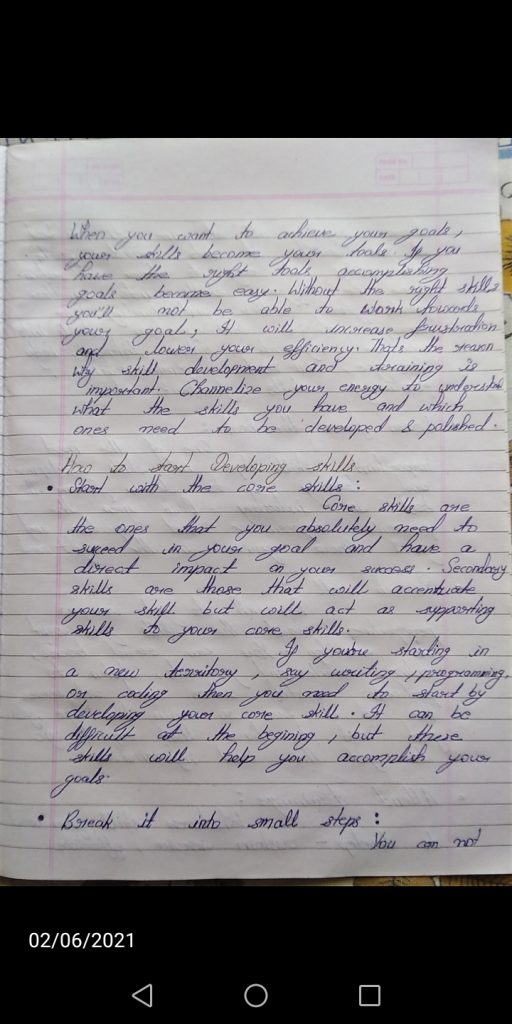 When you want to achieve your goals,
your skills become your tools. If you
have the right tools accomplishing
goals become easy. Without the right skills
you'll not be able to work towards
your goal, It will increase frustration
and lower your efficiency. That's the reason
why skill development and training is
important. Channelize your energy to
what the skills you have and which
ones need to be developed & polished.
How to start Developing skills
• Start with the core skills :
Core skills are
the ones that you absolutely need to
succeed in your goal and have a
direct impact on your success. Secondary
skills are those that will accentuate
your skill but will act as supporting
skills to your core skills.
If you're starting in
a new territory, say writing, programming,
or coding then you need to start by
developing your core skill. It can be
difficult at the begining, but these
skills will help you accomplish your
goals.
• Break it into small steps :
You can not
02/06/2021